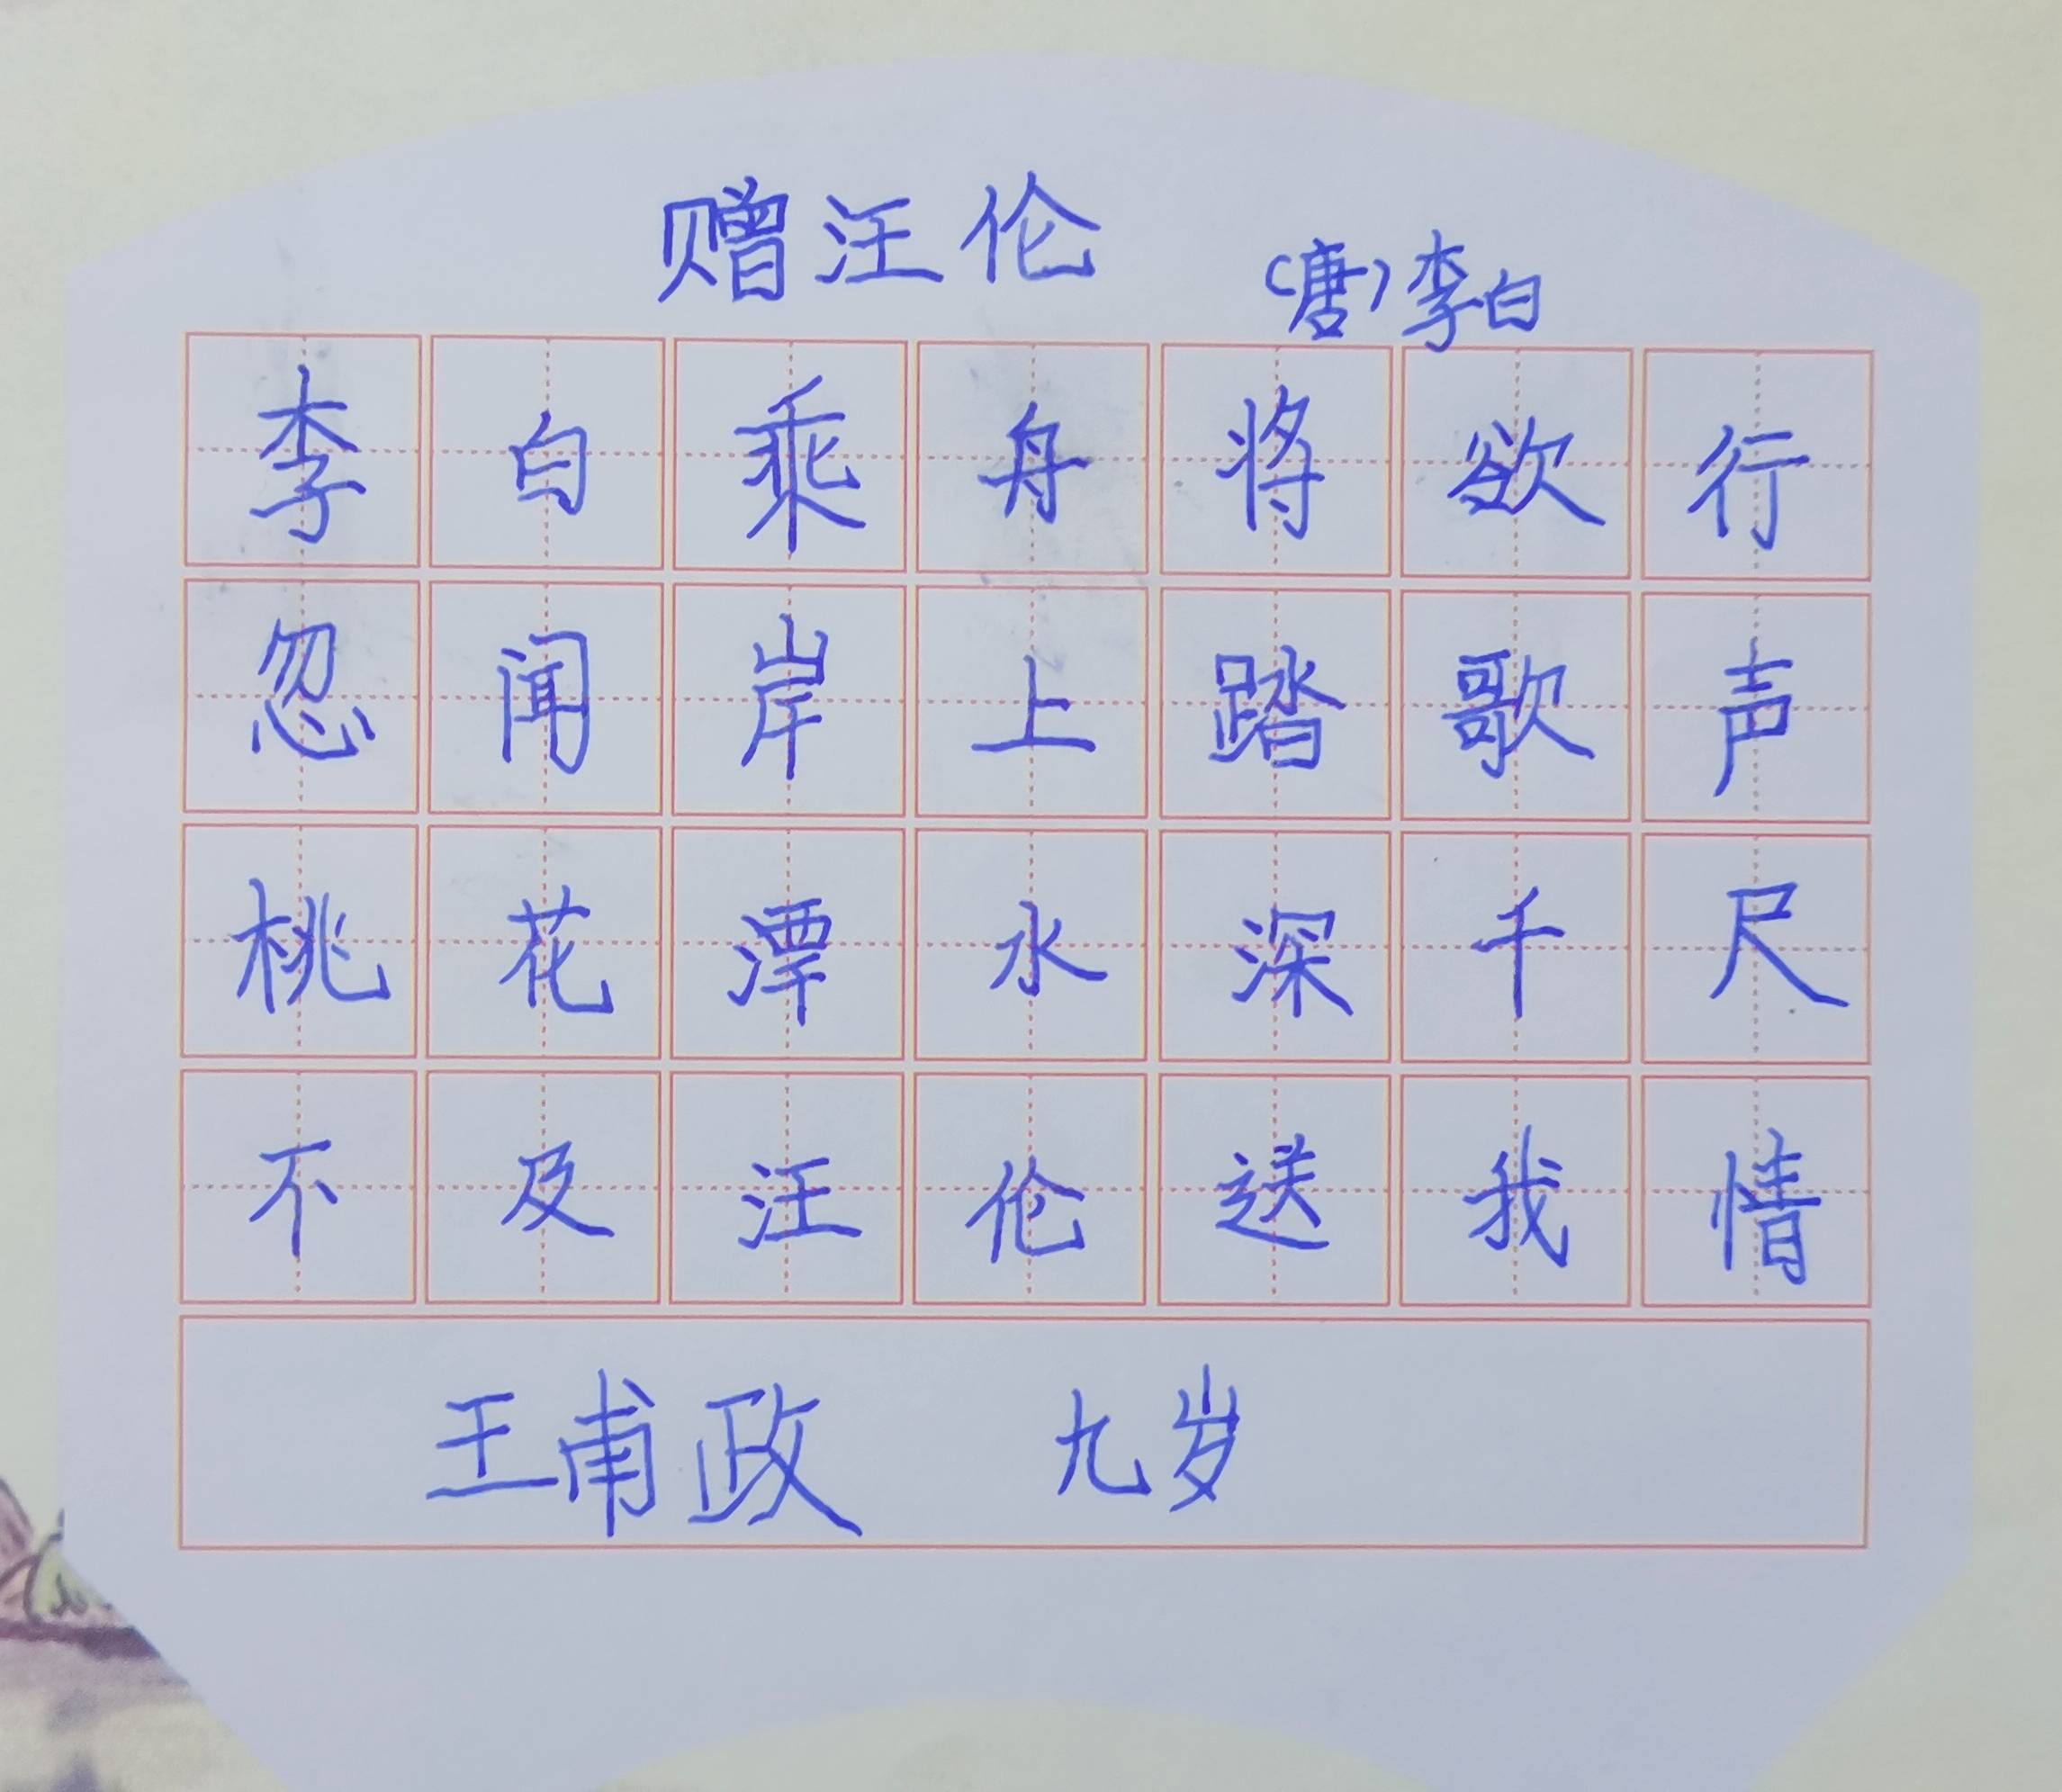 赠汪伦
(唐)李白
李白乘舟将欲行
忽闻岸上踏歌声
桃花潭水深千尺
不及汪伦送我情
王甫政 九岁